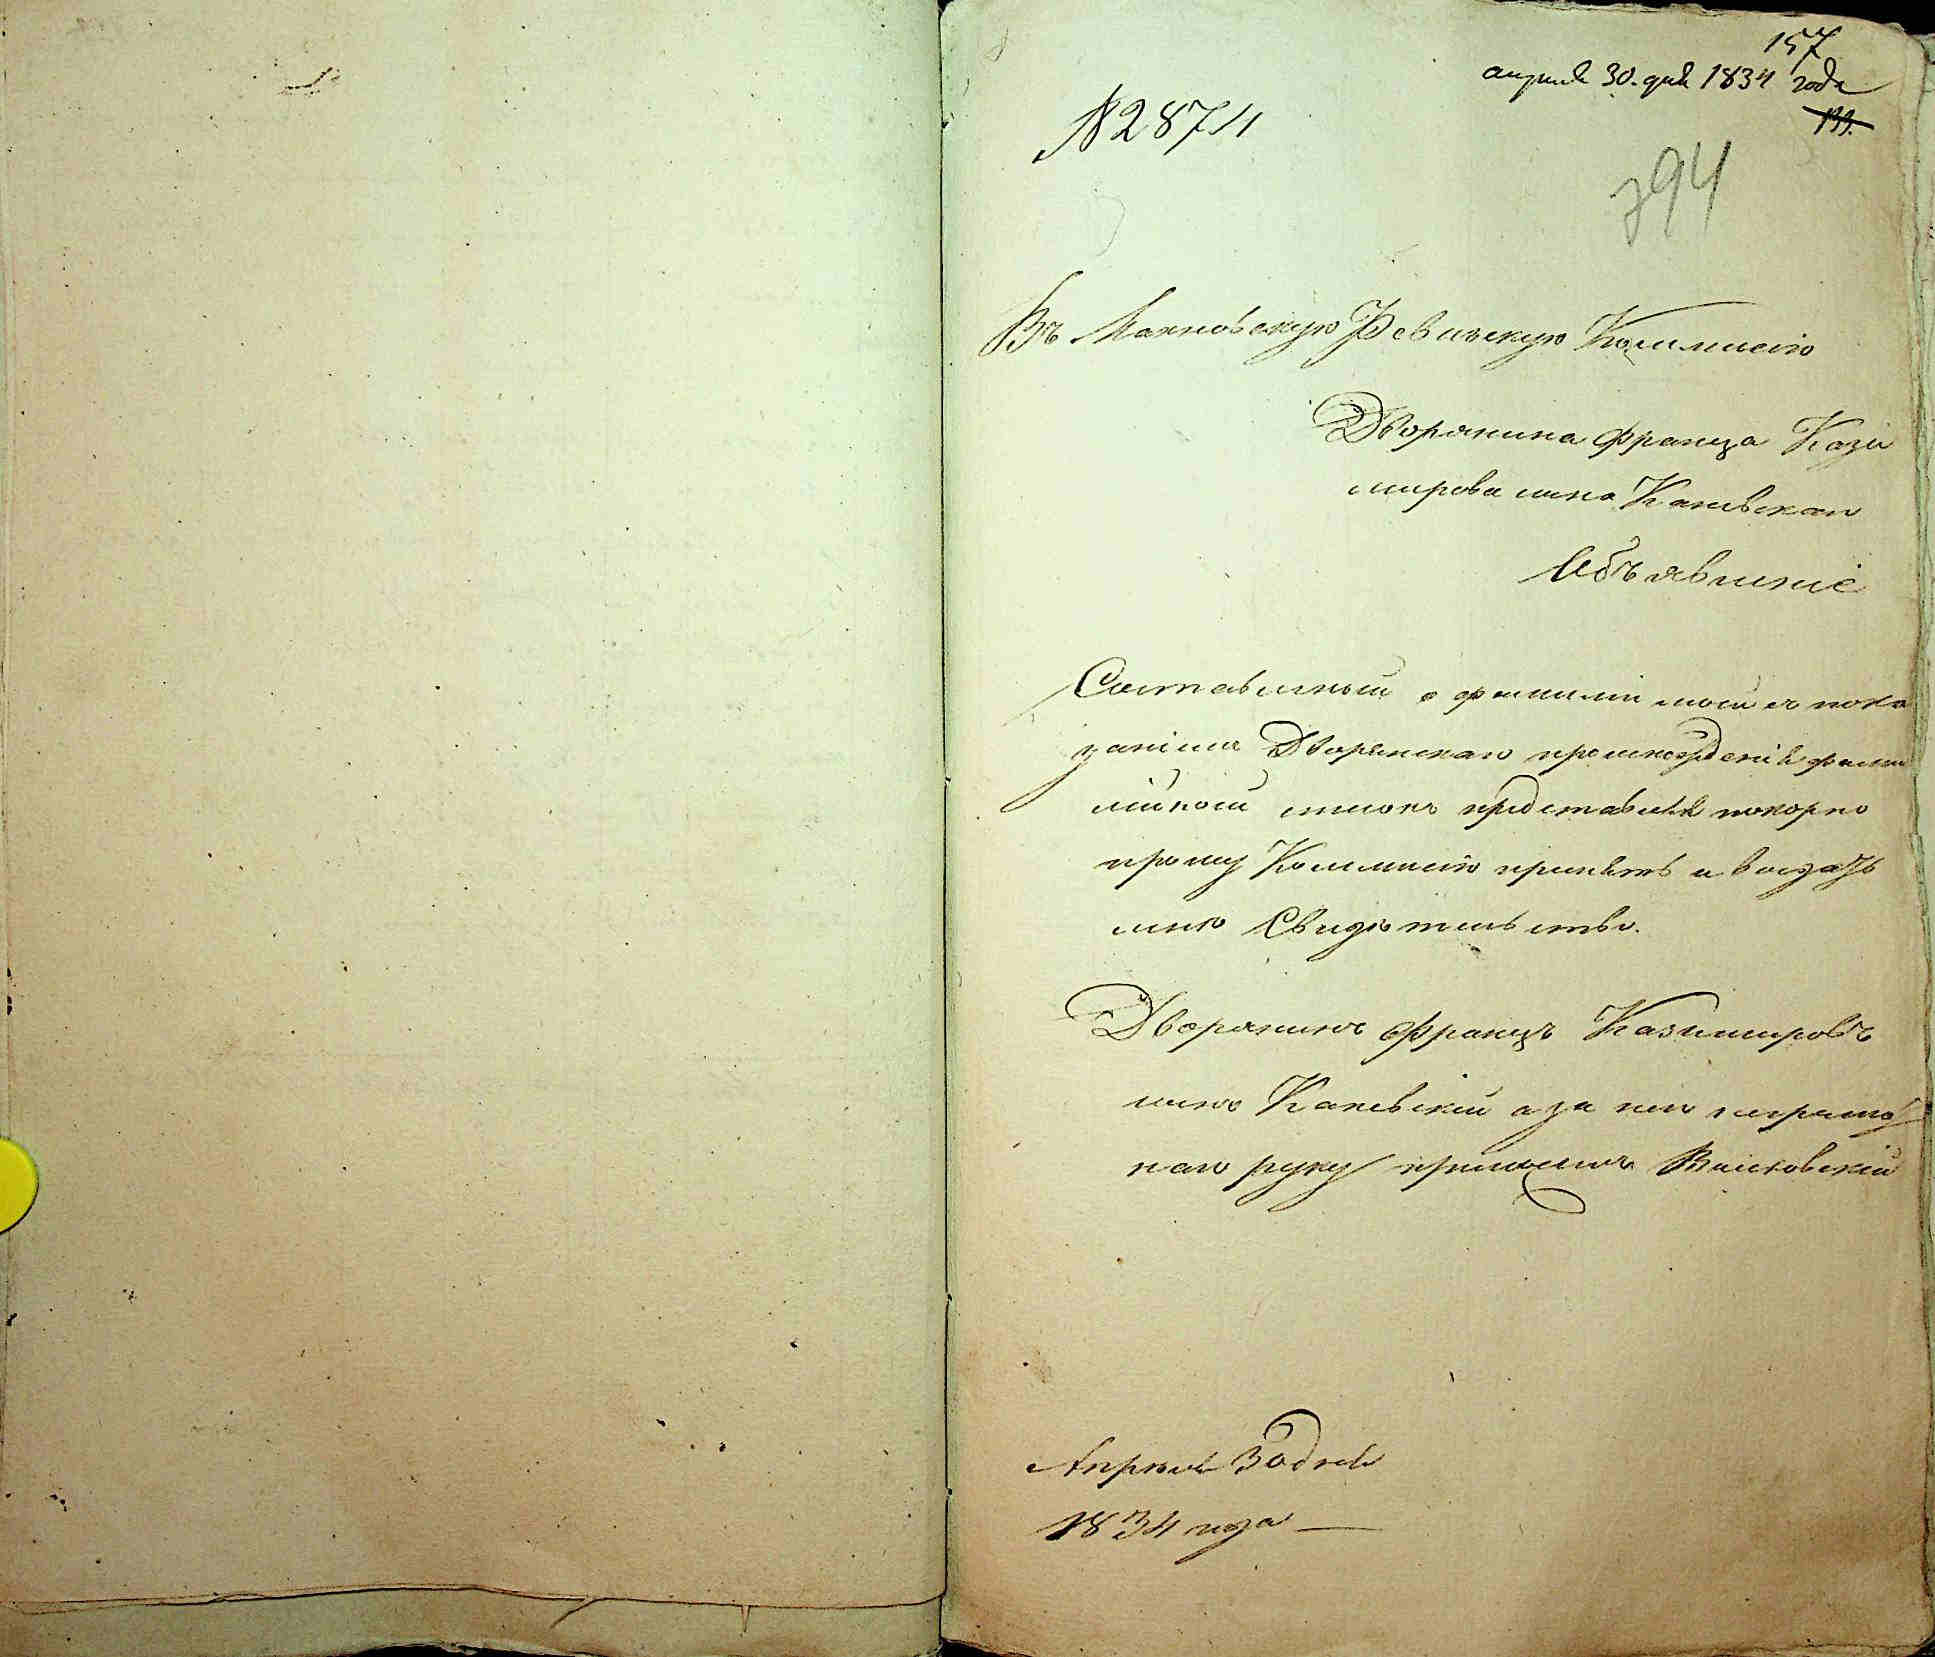 157
апреля 30. дня 1834 года
133.
№2874
794
Въ Махновскую Ревизскую Коммисію
Дворянина Франца Кази
мирова сына Каневскаго
Объявленіе
Составленный о фамиліи моей съ пока
заніемъ Дворянскаго происхожденія фами
лійной списокъ представляя покорно
прошу Коммисію принять и выдать
мнѣ Свидѣтельство.
Дворянинъ Францъ Казимировъ
сынъ Каневскій а за него неграмот
наго руку приложилъ
Апреля 30 дня
1834 года